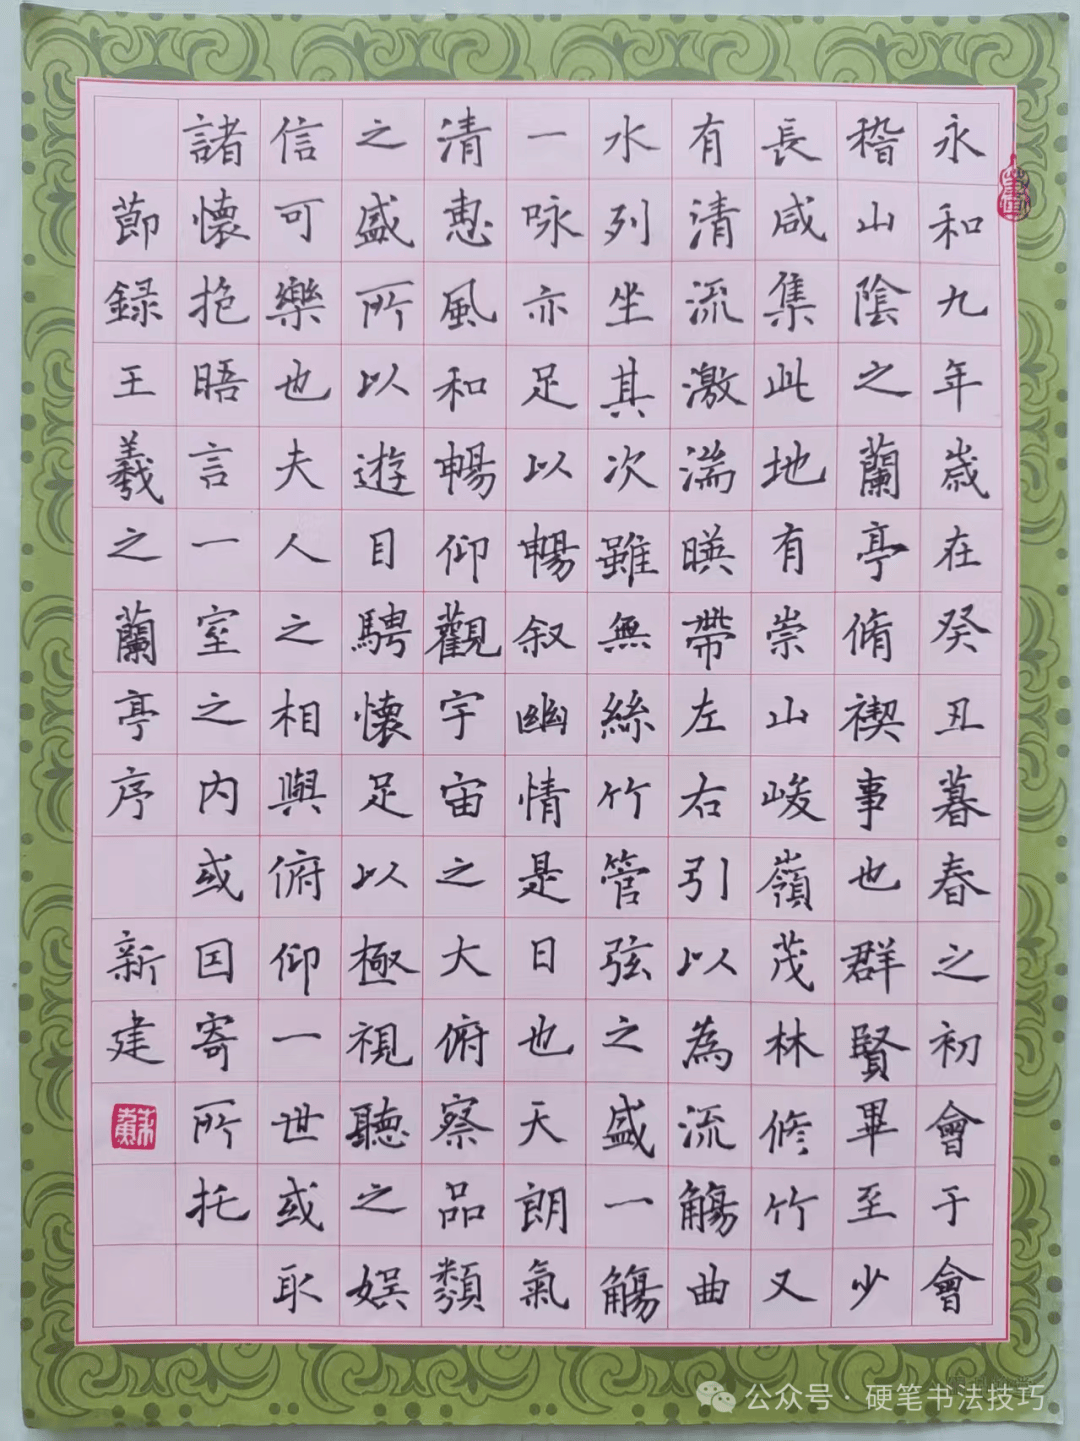 永和九年歲在癸丑暮春之初會于會
稽山陰之蘭亭脩禊事也群賢畢至少
長咸集此地有崇山峻嶺茂林修竹又
有清流激湍暎帶左右引以為流觴曲
水列坐其次雖無絲竹管弦之盛一觴
一咏亦足以暢叙幽情是日也天朗氣
清惠風和暢仰觀宇宙之大俯察品類
之盛所以遊目騁懷足以極視聽之娛
信可樂也夫人之相與俯仰一世或取
諸懷抱晤言一室之内或因寄所托
節録王羲之蘭亭序 新建
公众号·硬笔书法技巧